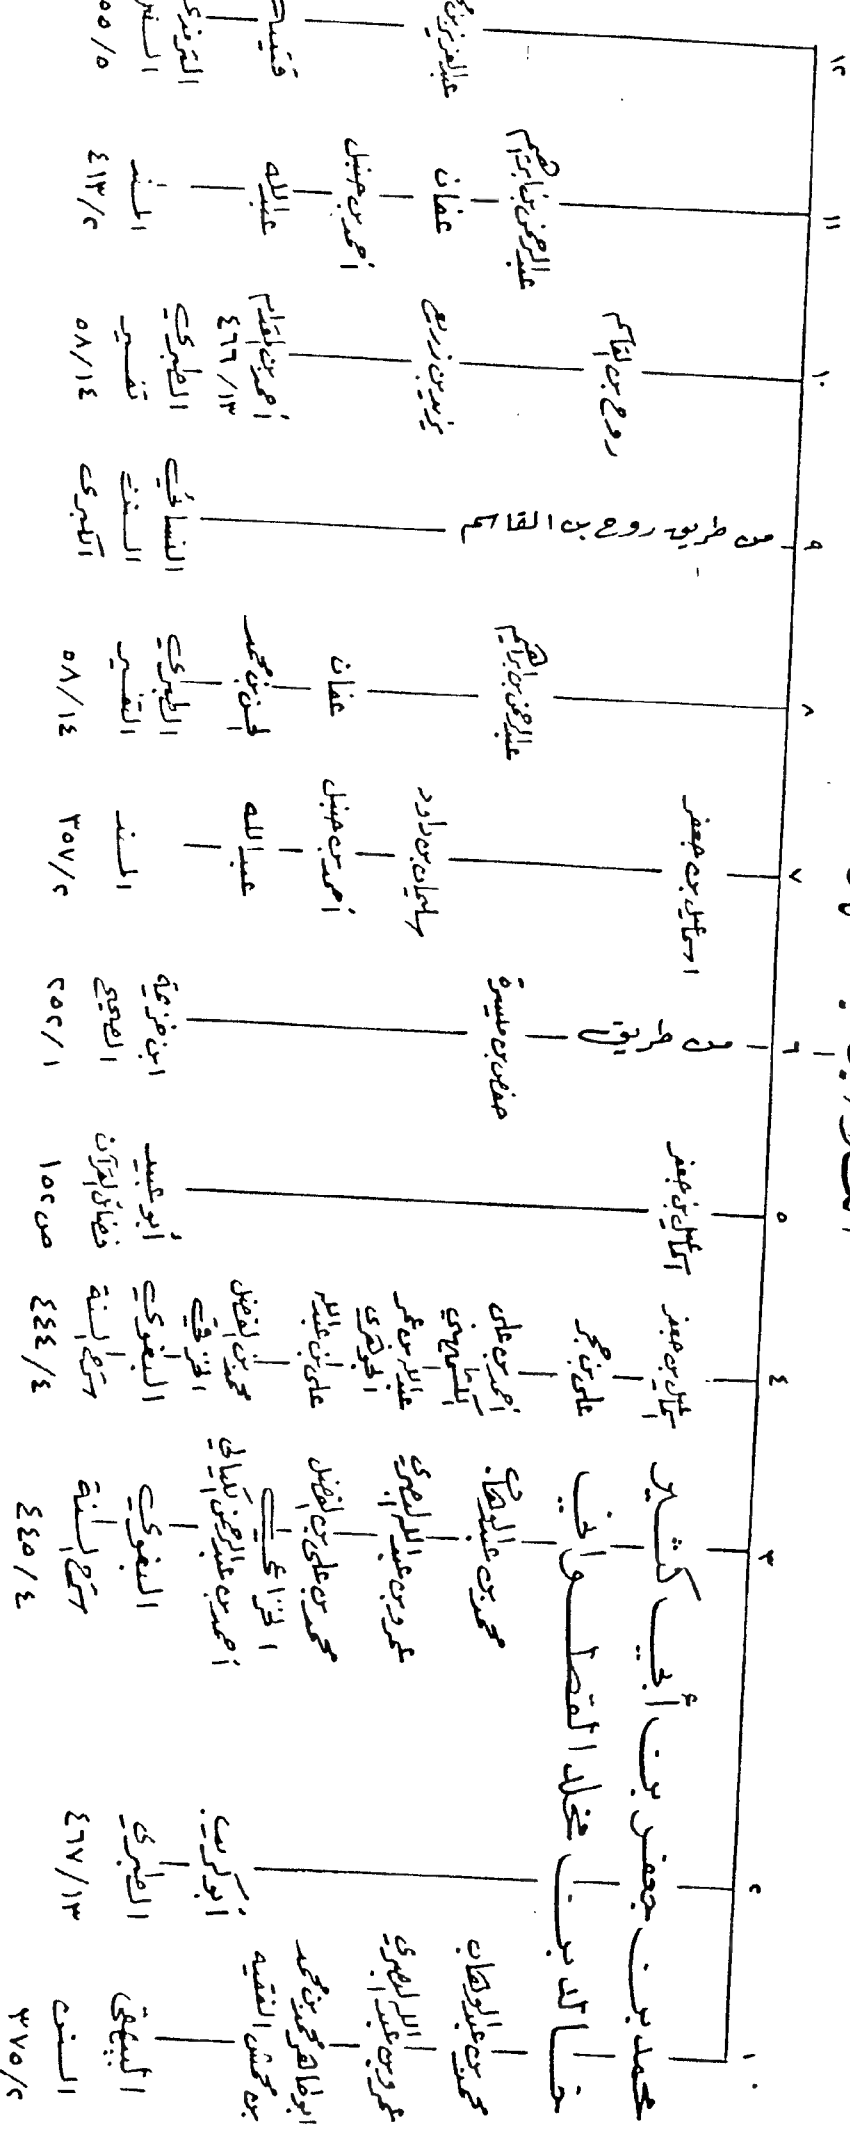 ١
محمد بن جعفر بن أبي كثير
خالد بن مخلد القطواني
محمد بن عبد الوهاب
عمرو بن عبد الله البصري
ابو طاهر محمد بن محمد
بن محمش الفقيه
البيهقي
السنن
٣٧٥/٢
٢
أبو كريب
الطبري
٤٦٧/١٣
٣
محمد بن عبد الوهاب
عمرو بن عبد الله البصري
محمد بن علي بن الفضل
الخزاعي
أحمد بن عبد الرحمن الكيالي
البغوي
شرح السنة
٤٤٥/٤
٤
اسماعيل بن جعفر
علي بن حجر
أحمد بن علي
الكشميهني
عبد الله بن عمر
الجوهري
علي بن عبد الله
محمد بن الفضل
الخرقي
البغوي
شرح السنة
٤٤٤/٤
٥
اسماعيل بن جعفر
أبو عبيد
فضائل القرآن
ص ١٥٢
٦
من طريق
حفص بن ميسرة
ابن خزيمة
الصحيح
٢٥٢/١
٧
اسماعيل بن جعفر
سليمان بن داود
أحمد بن حنبل
عبد الله
المسند
٣٥٧/٢
٨
عبد الرحمن بن ابراهيم
عفان
الحسن بن محمد
الطبري
التفسير
٥٨/١٤
٩
من طريق روح بن القاسم
النسائي
السنن
الكبرى
١٠
روح بن القاسم
يزيد بن زريع
أحمد بن المقدام
٤٦٦/١٣
الطبري
تفسير
٥٨/١٤
١١
عبد الرحمن بن ابراهيم
عفان
أحمد بن حنبل
عبد الله
المسند
٤١٣/٢
١٢
عبد العزيز بن
قتيبة
الترمذي
السنن
٥/١٥٥